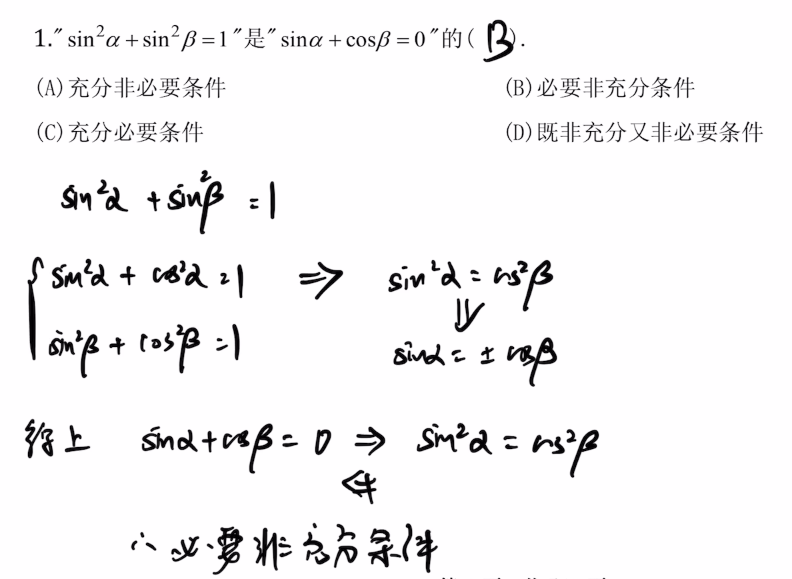 1."sin²α+sin²β=1"是"sinα+cosβ=0"的( B ).
(A)充分非必要条件 (B)必要非充分条件
(C)充分必要条件 (D)既非充分又非必要条件
sin²α + sin²β = 1
{ sin²α + cos²α = 1 ⇒ sin²α = cos²β
⇓
sin²β + cos²β = 1 sinα = ± cosβ
综上 sinα + cosβ = 0 ⇒ sin²α = cos²β
⇍
∴ 必要非充分条件